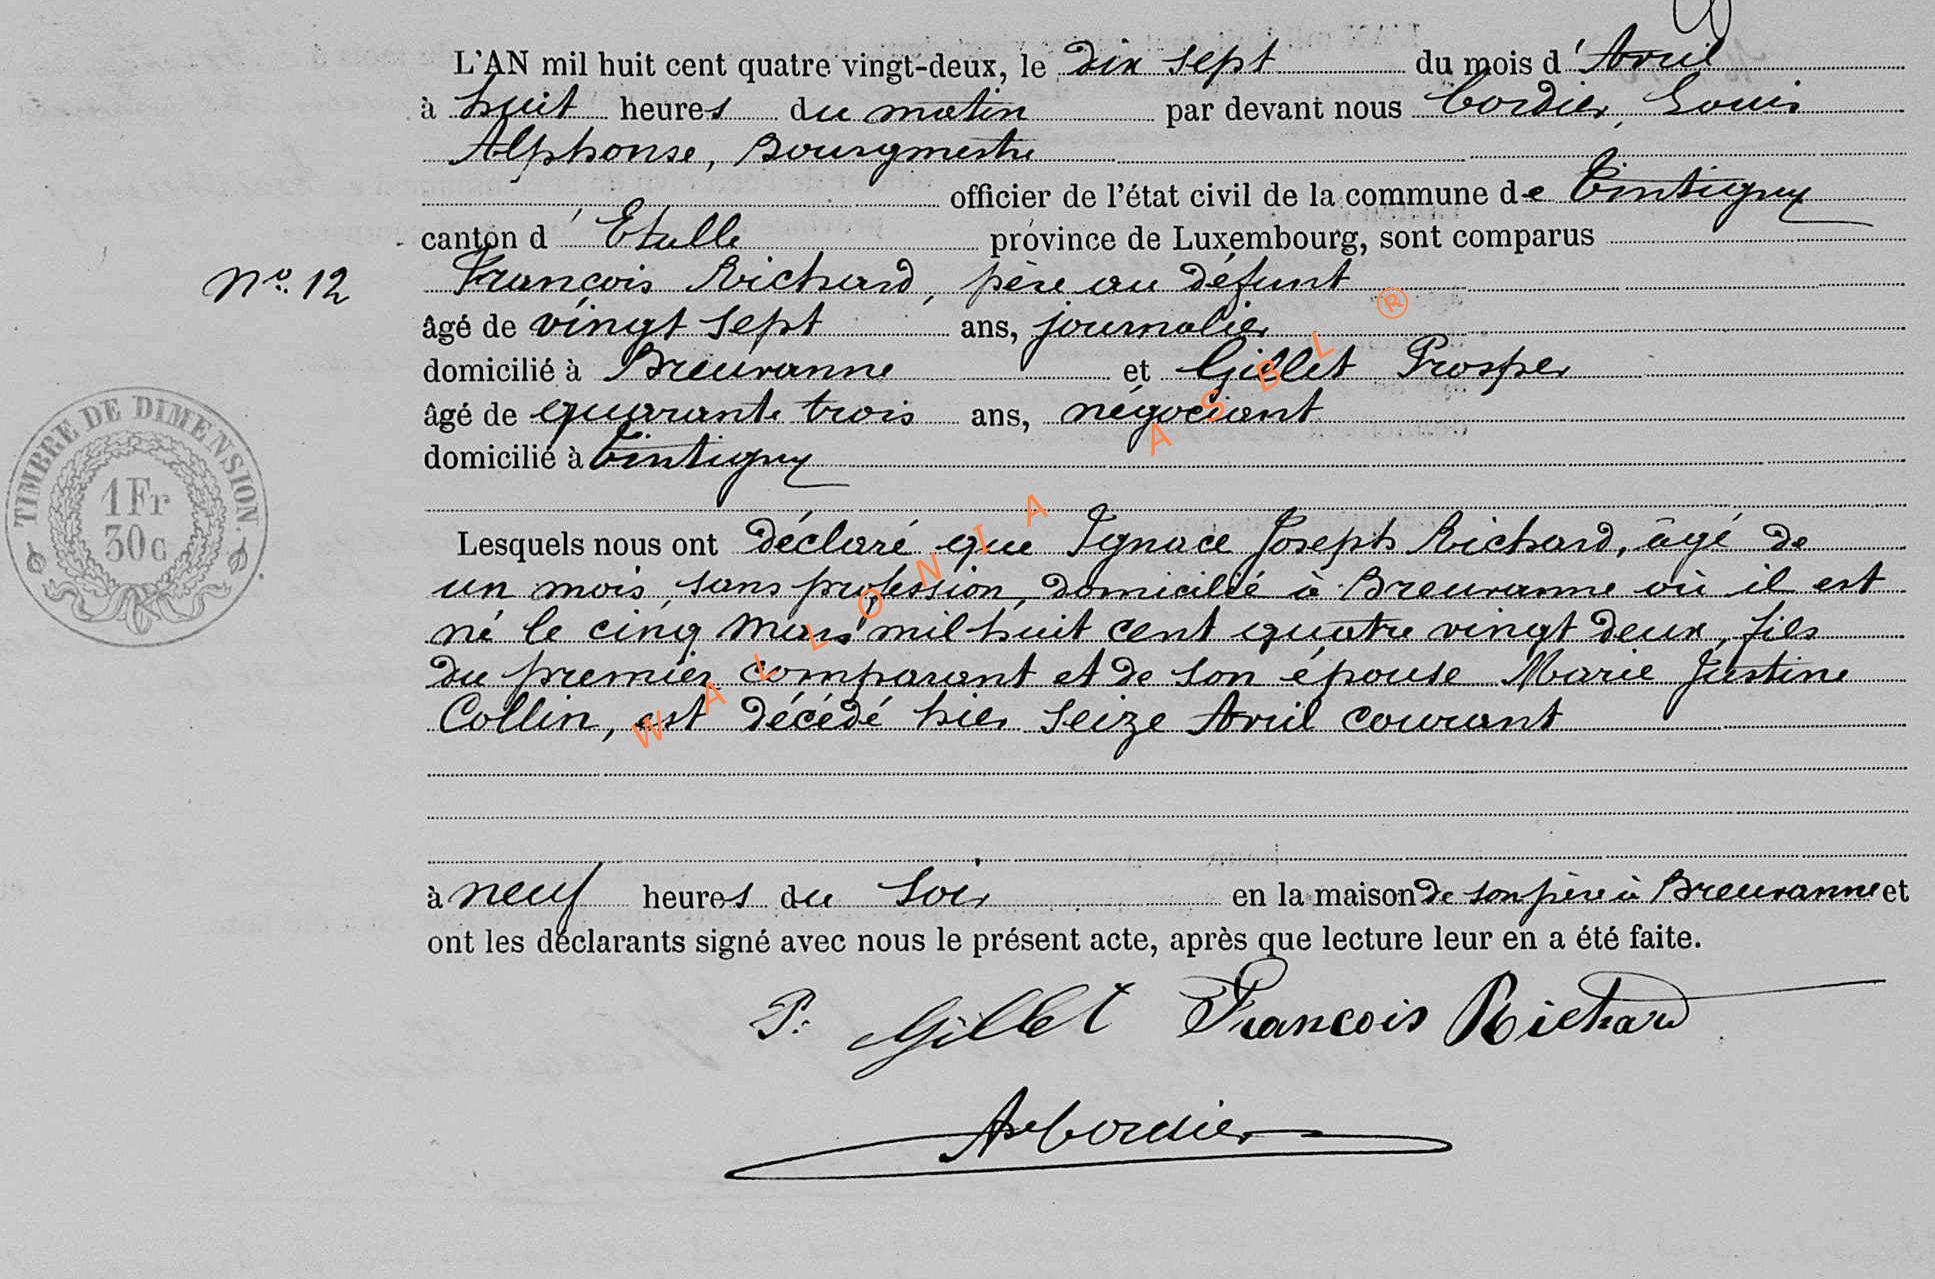 L'AN mil huit cent quatre vingt-deux, le dix sept du mois d'Avril
à huit heures du matin par devant nous Cordier, Louis
Alphonse, Bourgmestre
officier de l'état civil de la commune de Tintigny
canton d'Etalle province de Luxembourg, sont comparus
No. 12 François Richard, père au défunt
âgé de vingt sept ans, journalier
domicilié à Breuvanne et Gillet Prosper
âgé de quarante trois ans, négociant
domicilié à Tintigny
TIMBRE DE DIMENSION.
1 Fr
30 c
Lesquels nous ont déclaré que Ignace Joseph Richard, âgé de
un mois, sans profession, domicilié à Breuvanne où il est
né le cinq Mars mil huit cent quatre vingt deux, fils
du premier comparant et de son épouse Marie Justine
Collin, est décédé hier seize Avril courant
à neuf heures du soir en la maison de son père à Breuvanne et
ont les déclarants signé avec nous le présent acte, après que lecture leur en a été faite.
P. Gillet François Richard
Cordier
WALLONIA ASBL ®